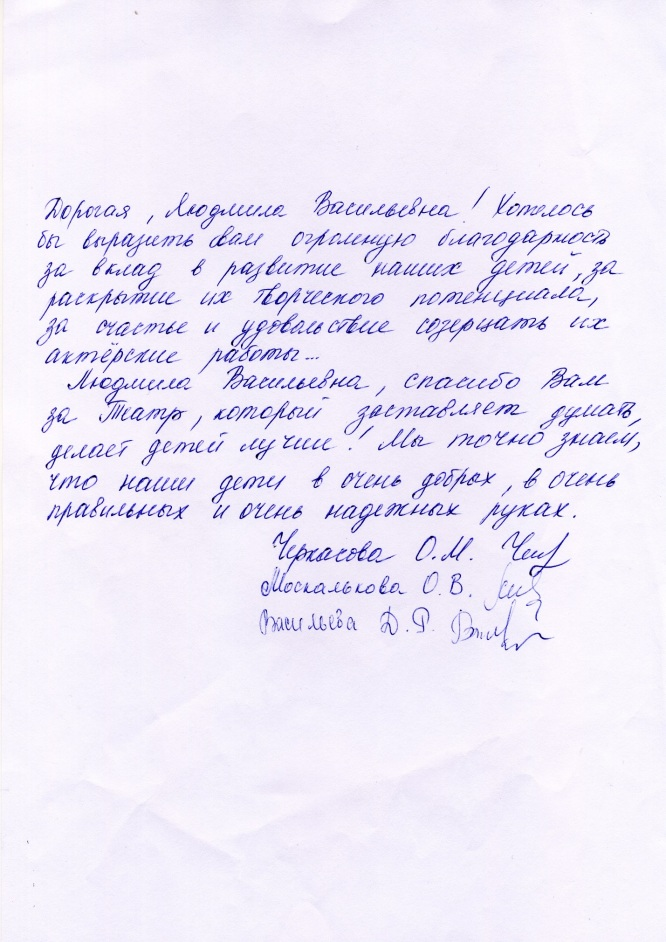 Дорогая, Людмила Васильевна! Хотелось
бы выразить вам огромную благодарность
за вклад в развитие наших детей, за
раскрытие их творческого потенциала,
за счастье и удовольствие созерцать их
актёрские работы...
Людмила Васильевна, спасибо Вам
за Театр, который заставляет думать,
делает детей лучше! Мы точно знаем,
что наши дети в очень добрых, в очень
правильных и очень надежных руках.
Черкасова О.М.
Москалькова О.В.
Васильева Д.Р.